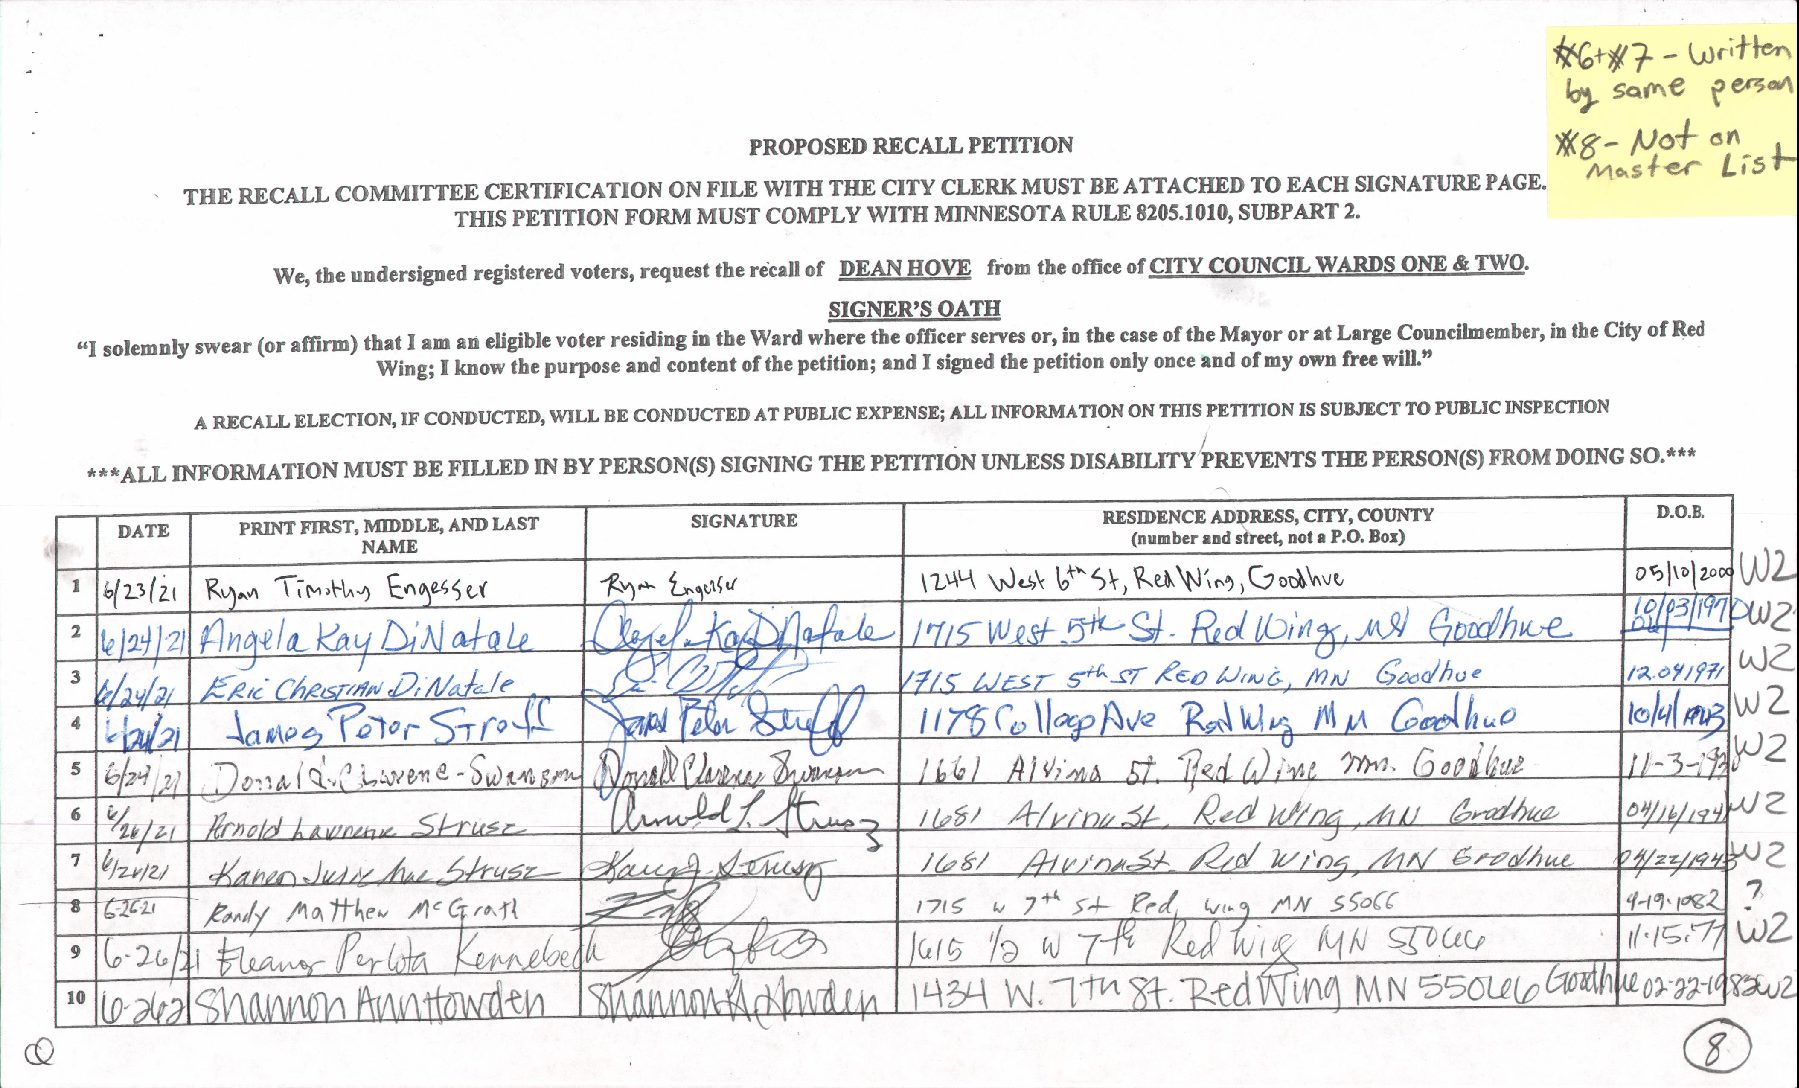 #6+#7 - Written
by same person
#8 - Not on
Master List
PROPOSED RECALL PETITION
THE RECALL COMMITTEE CERTIFICATION ON FILE WITH THE CITY CLERK MUST BE ATTACHED TO EACH SIGNATURE PAGE.
THIS PETITION FORM MUST COMPLY WITH MINNESOTA RULE 8205.1010, SUBPART 2.
We, the undersigned registered voters, request the recall of DEAN HOVE from the office of CITY COUNCIL WARDS ONE & TWO.
SIGNER'S OATH
"I solemnly swear (or affirm) that I am an eligible voter residing in the Ward where the officer serves or, in the case of the Mayor or at Large Councilmember, in the City of Red
Wing; I know the purpose and content of the petition; and I signed the petition only once and of my own free will."
A RECALL ELECTION, IF CONDUCTED, WILL BE CONDUCTED AT PUBLIC EXPENSE; ALL INFORMATION ON THIS PETITION IS SUBJECT TO PUBLIC INSPECTION
***ALL INFORMATION MUST BE FILLED IN BY PERSON(S) SIGNING THE PETITION UNLESS DISABILITY PREVENTS THE PERSON(S) FROM DOING SO.***
DATE PRINT FIRST, MIDDLE, AND LAST NAME SIGNATURE RESIDENCE ADDRESS, CITY, COUNTY (number and street, not a P.O. Box) D.O.B.
1 6/23/21 Ryan Timothy Engesser Ryan Engesser 1244 West 6th St, Red Wing, Goodhue 05/10/2000 W2
2 6/24/21 Angela Kay DiNatale Kay DiNatale 1715 West 5th St. Red Wing, Goodhue W2
3 6/24/21 ERIC CHRISTIAN DiNatale 1715 WEST 5th ST RED WING, MN Goodhue 12.04 1971 W2
4 James Peter Stroff James Peter 1178 College Ave Red Wing MN Goodhue 10/4/1943 W2
5 6/24/21 Donald Clarence Swanson Donald Clarence Swanson 1661 Alvina St. Red Wing Mn. Goodhue 11-3- W2
6 6/26/21 Arnold Lawrence Strusz Arnold L. Strusz 1681 Alvina St. Red Wing, MN Goodhue W2
7 Karen June Mae Strusz Karen J. Strusz 1681 Alvina St. Red Wing, MN Goodhue 04/22/1943 W2
8 6-26-21 Randy Matthew McGrath 1715 W 7th St Red, Wing MN 55066 ?
9 6-26/21 Eleanor Kennebeck 1615 1/2 W 7th Red Wing MN 55066 11.15.77 W2
10 6-262 Shannon Ann Howden Shannon A Howden 1434 W. 7th St. Red Wing MN 55066 Goodhue 02-22-1983 W2
8